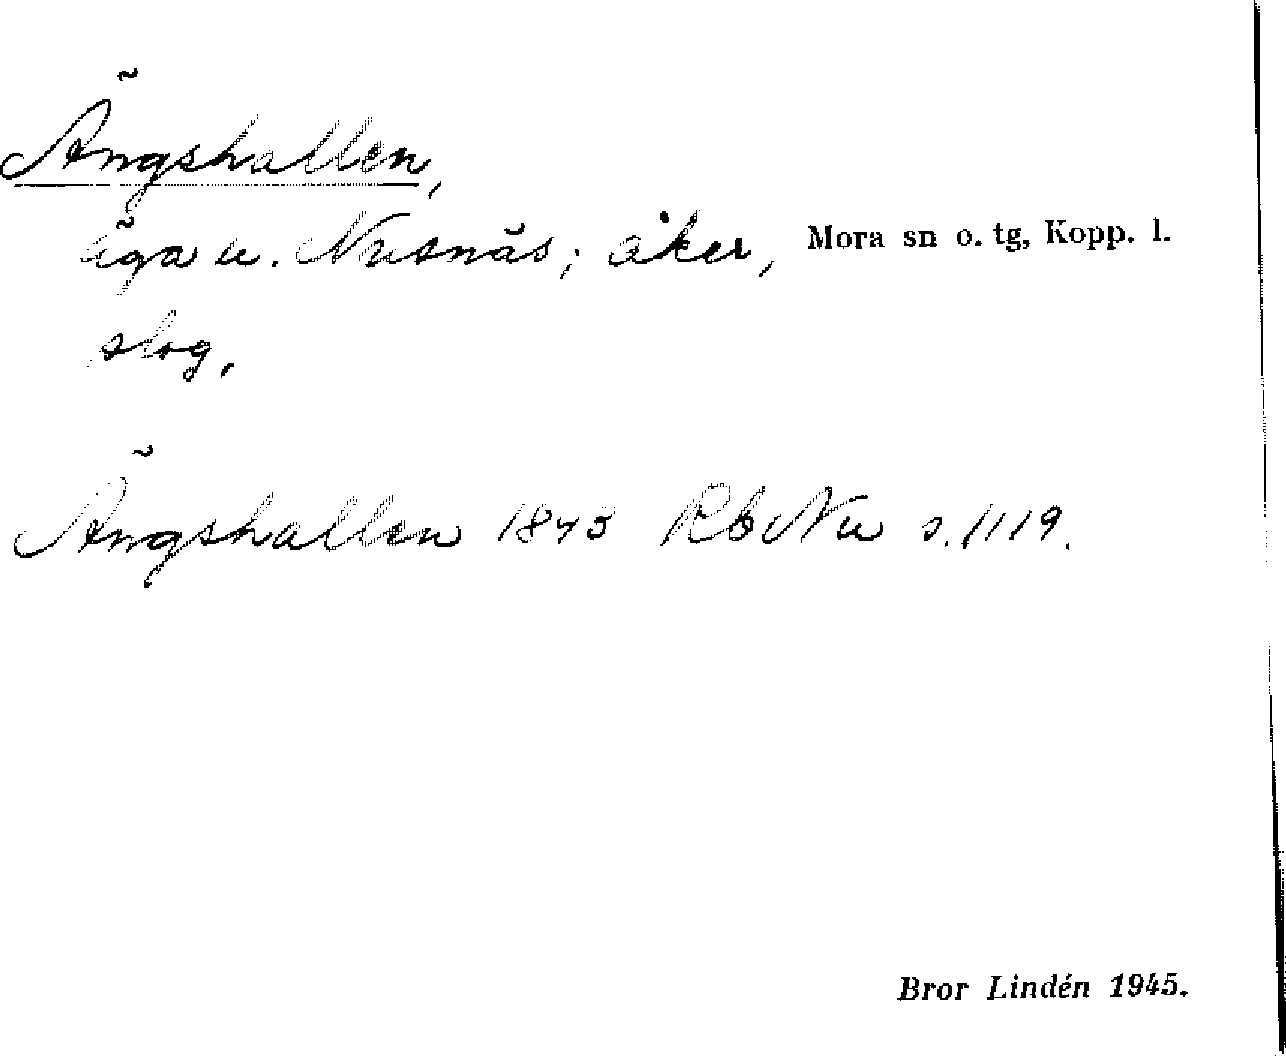 Ängshallen,
äga u. Nusnäs; åker, Mora sn o. tg, Kopp. l.
slog,
Ängshallen 1845 Rb Nu s. 1119.
Bror Lindén 1945.